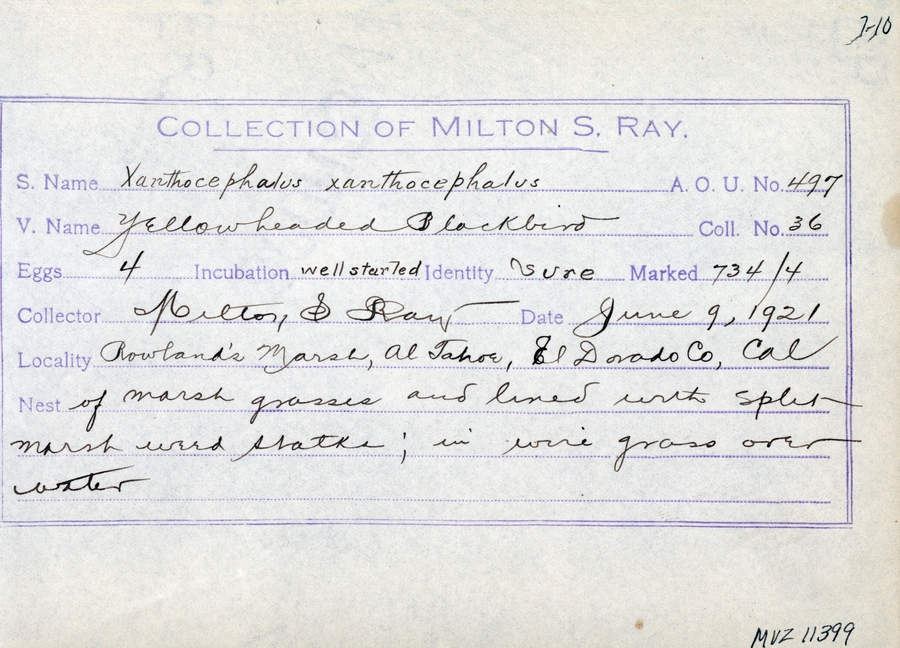 7-10
COLLECTION OF MILTON S. RAY.
S. Name Xanthocephalus xanthocephalus A. O. U. No. 497
V. Name Yellowheaded Blackbird Coll. No. 36
Eggs 4 Incubation well started Identity Sure Marked 734/4
Collector Milton S Ray Date June 9, 1921
Locality Rowland's Marsh, Al Tahoe, El Dorado Co, Cal
Nest of marsh grasses and lined with split
marsh weed stalks; in wire grass over
water
MVZ 11399